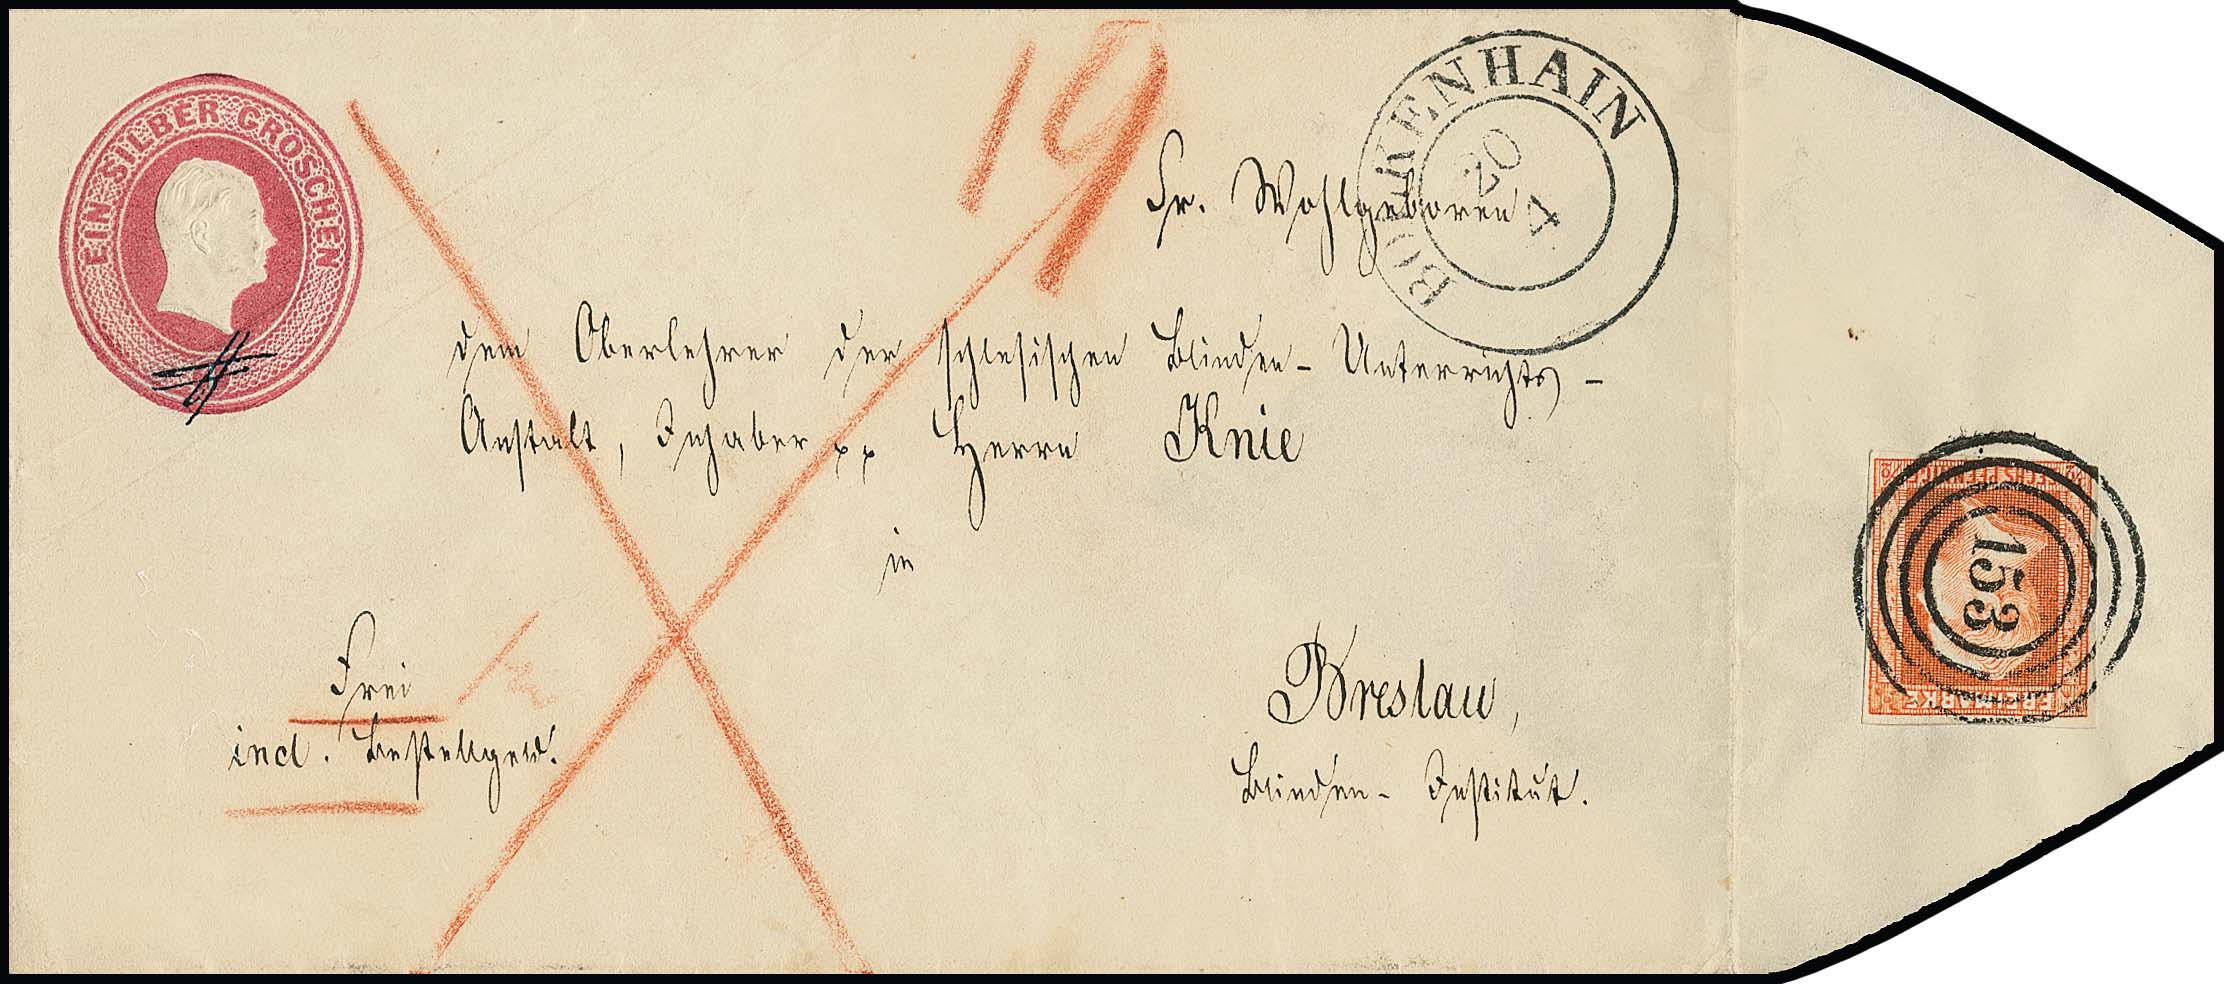 EIN SILBER GROSCHEN
19
BOLKENHAIN
20
4
Sr. Wohlgeboren
dem Oberlehrer der schlesischen Blinden-Unterrichts-
Anstalt, Inhaber pp Herrn Knie
in
Frei
incl. Bestellgeld.
Breslau,
Blinden-Institut.
SECHS PFENNIG
153
FREIMARKE